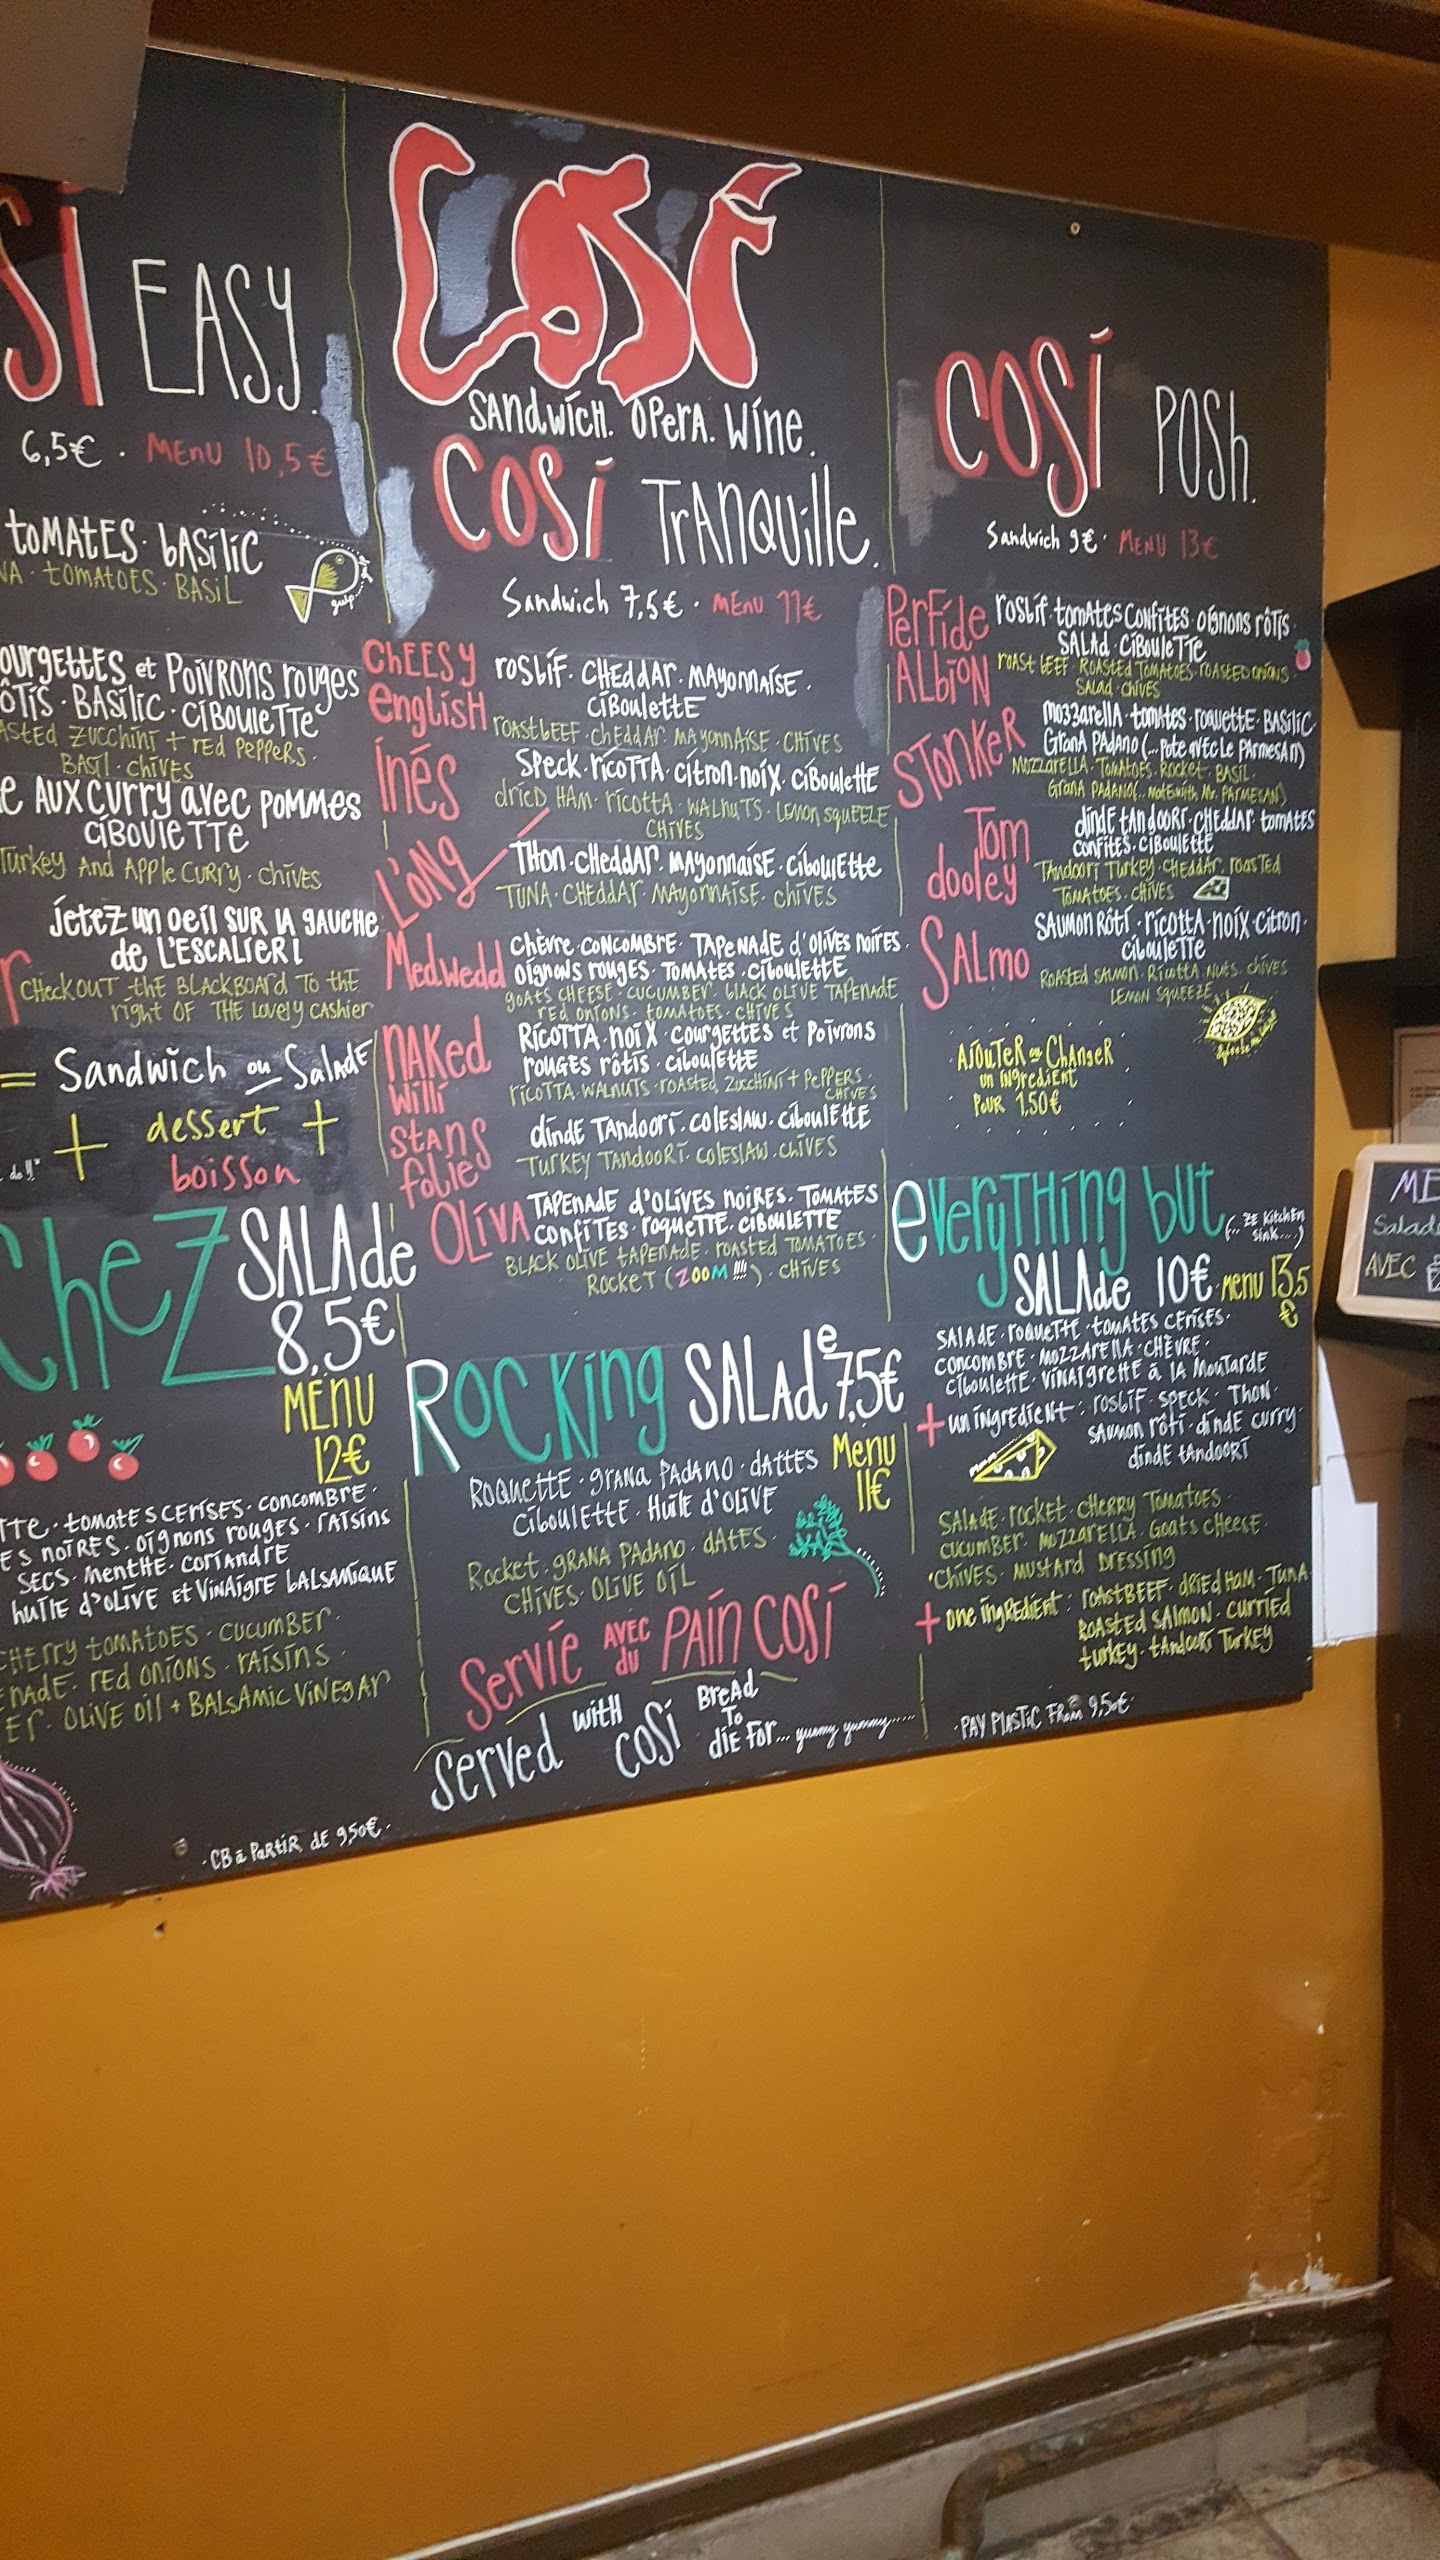 SI EASY.
6,5€ . MENU 10,5€
TOMATES. BASILIC
TOMATOES. BASIL
gulp
ET POIVRONS ROUGES
BASILIC. CIBOULETTE
ZUCCHINI + RED PEPPERS.
CHIVES
AUX CURRY AVEC POMMES
CIBOULETTE
TURKEY AND APPLE CURRY. CHIVES
JETEZ UN OEIL SUR LA GAUCHE
DE L'ESCALIER!
CHECKOUT THE BLACKBOARD TO THE
RIGHT OF THE LOVELY CASHIER
= SANDWICH OU SALADE
+ DESSERT +
BOISSON
CHEZ SALADE
8,5€
MENU
12€
TOMATES CERISES. CONCOMBRE.
NOIRES. OIGNONS ROUGES. RAISINS
SECS. MENTHE. CORIANDRE
HUILE D'OLIVE ET VINAIGRE BALSAMIQUE
CHERRY TOMATOES. CUCUMBER.
RED ONIONS. RAISINS.
OLIVE OIL + BALSAMIC VINEGAR
. CB à PARTIR DE 9,50€.
COSÍ
SANDWICH. OPERA. WINE.
COSÍ TRANQUILLE.
SANDWICH 7,5€. MENU 11€
CHEESY ENGLISH
ROSBIF. CHEDDAR. MAYONNAISE.
CIBOULETTE
ROASTBEEF. CHEDDAR. MAYONNAISE. CHIVES
INÉS
SPECK. RICOTTA. CITRON. NOIX. CIBOULETTE
DRIED HAM. RICOTTA. WALNUTS. LEMON SQUEEZE
CHIVES
L'ONG
THON. CHEDDAR. MAYONNAISE. CIBOULETTE
TUNA. CHEDDAR. MAYONNAISE. CHIVES
MEDWEDD
CHÈVRE. CONCOMBRE. TAPENADE D'OLIVES NOIRES.
OIGNONS ROUGES. TOMATES. CIBOULETTE
GOATS CHEESE. CUCUMBER. BLACK OLIVE TAPENADE
RED ONIONS. TOMATOES. CHIVES
NAKED WILLI
RICOTTA. NOIX. COURGETTES ET POIVRONS
ROUGES RÔTIS. CIBOULETTE
RICOTTA. WALNUTS. ROASTED ZUCCHINI + PEPPERS.
CHIVES
STANS FOLIES
DINDE TANDOORI. COLESLAW. CIBOULETTE
TURKEY TANDOORI. COLESLAW. CHIVES
OLIVA
TAPENADE D'OLIVES NOIRES. TOMATES
CONFITES. ROQUETTE. CIBOULETTE
BLACK OLIVE TAPENADE. ROASTED TOMATOES.
ROCKET (ZOOM !!!!). CHIVES
ROCKING SALADE 7,5€
MENU
11€
ROQUETTE. GRANA PADANO. DATTES
CIBOULETTE. HUILE D'OLIVE
ROCKET. GRANA PADANO. DATES.
CHIVES. OLIVE OIL
SERVIE AVEC DU PAIN COSI
SERVED WITH COSI BREAD TO
DIE FOR... yummy yummy.....
COSÍ POSH.
SANDWICH 9€. MENU 13€
PERFIDE ALBION
ROSBIF. TOMATES CONFITES. OIGNONS RÔTIS.
SALAD. CIBOULETTE
ROAST BEEF. ROASTED TOMATOES. ROASTED ONIONS.
SALAD. CHIVES
STONKER
MOZZARELLA. TOMATES. ROQUETTE. BASILIC
GRANA PADANO (...POTE AVEC LE PARMESAN)
MOZZARELLA. TOMATOES. ROCKET. BASIL.
GRANA PADANO(.. MATES WITH MR. PARMESAN)
TOM DOOLEY
DINDE TANDOORI. CHEDDAR. TOMATES
CONFITES. CIBOULETTE
TANDOORI TURKEY. CHEDDAR. ROASTED
TOMATOES. CHIVES
SALMO
SAUMON RÔTI. RICOTTA. NOIX. CITRON.
CIBOULETTE
ROASTED SALMON. RICOTTA. NUTS. CHIVES
LEMON SQUEEZE
AJOUTER OU CHANGER
UN INGREDIENT
POUR 1,50€
EVERYTHING BUT
(... ZE KITCHEN SINK....)
SALADE 10€ MENU 13,5€
SALADE. ROQUETTE. TOMATES CERISES.
CONCOMBRE. MOZZARELLA. CHÈVRE.
CIBOULETTE. VINAIGRETTE à LA MOUTARDE
+ UN INGREDIENT: ROSBIF. SPECK. THON.
SAUMON RÔTI. DINDE CURRY.
DINDE TANDOORI
SALADE. ROCKET. CHERRY TOMATOES.
CUCUMBER. MOZZARELLA. GOATS CHEESE.
CHIVES. MUSTARD DRESSING
+ ONE INGREDIENT: ROASTBEEF. DRIED HAM. TUNA
ROASTED SALMON. CURRIED
TURKEY. TANDOORI TURKEY
. PAY PLASTIC FROM 9,50€.
ME
Salade
AVEC